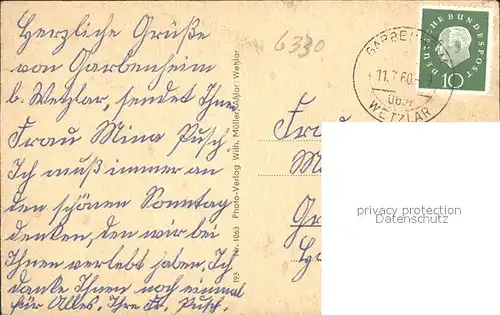 Herzliche Grüße
von Garbenheim
b. Wetzlar, sendet Ihnen
Frau Mina Pusch.
Ich muß immer an
den schönen Sonntag
denken, den wir bei
Ihnen verlebt haben. Ich
danke Ihnen noch einmal
für Alles. Ihre Fr. Pusch.
193 Nr. 1063 Photo-Verlag Wilh. Müller Wetzlar
6330
GARBENHEIM
11.7.60
über
WETZLAR
DEUTSCHE BUNDESPOST
10
Frau
privacy protection
Datenschutz